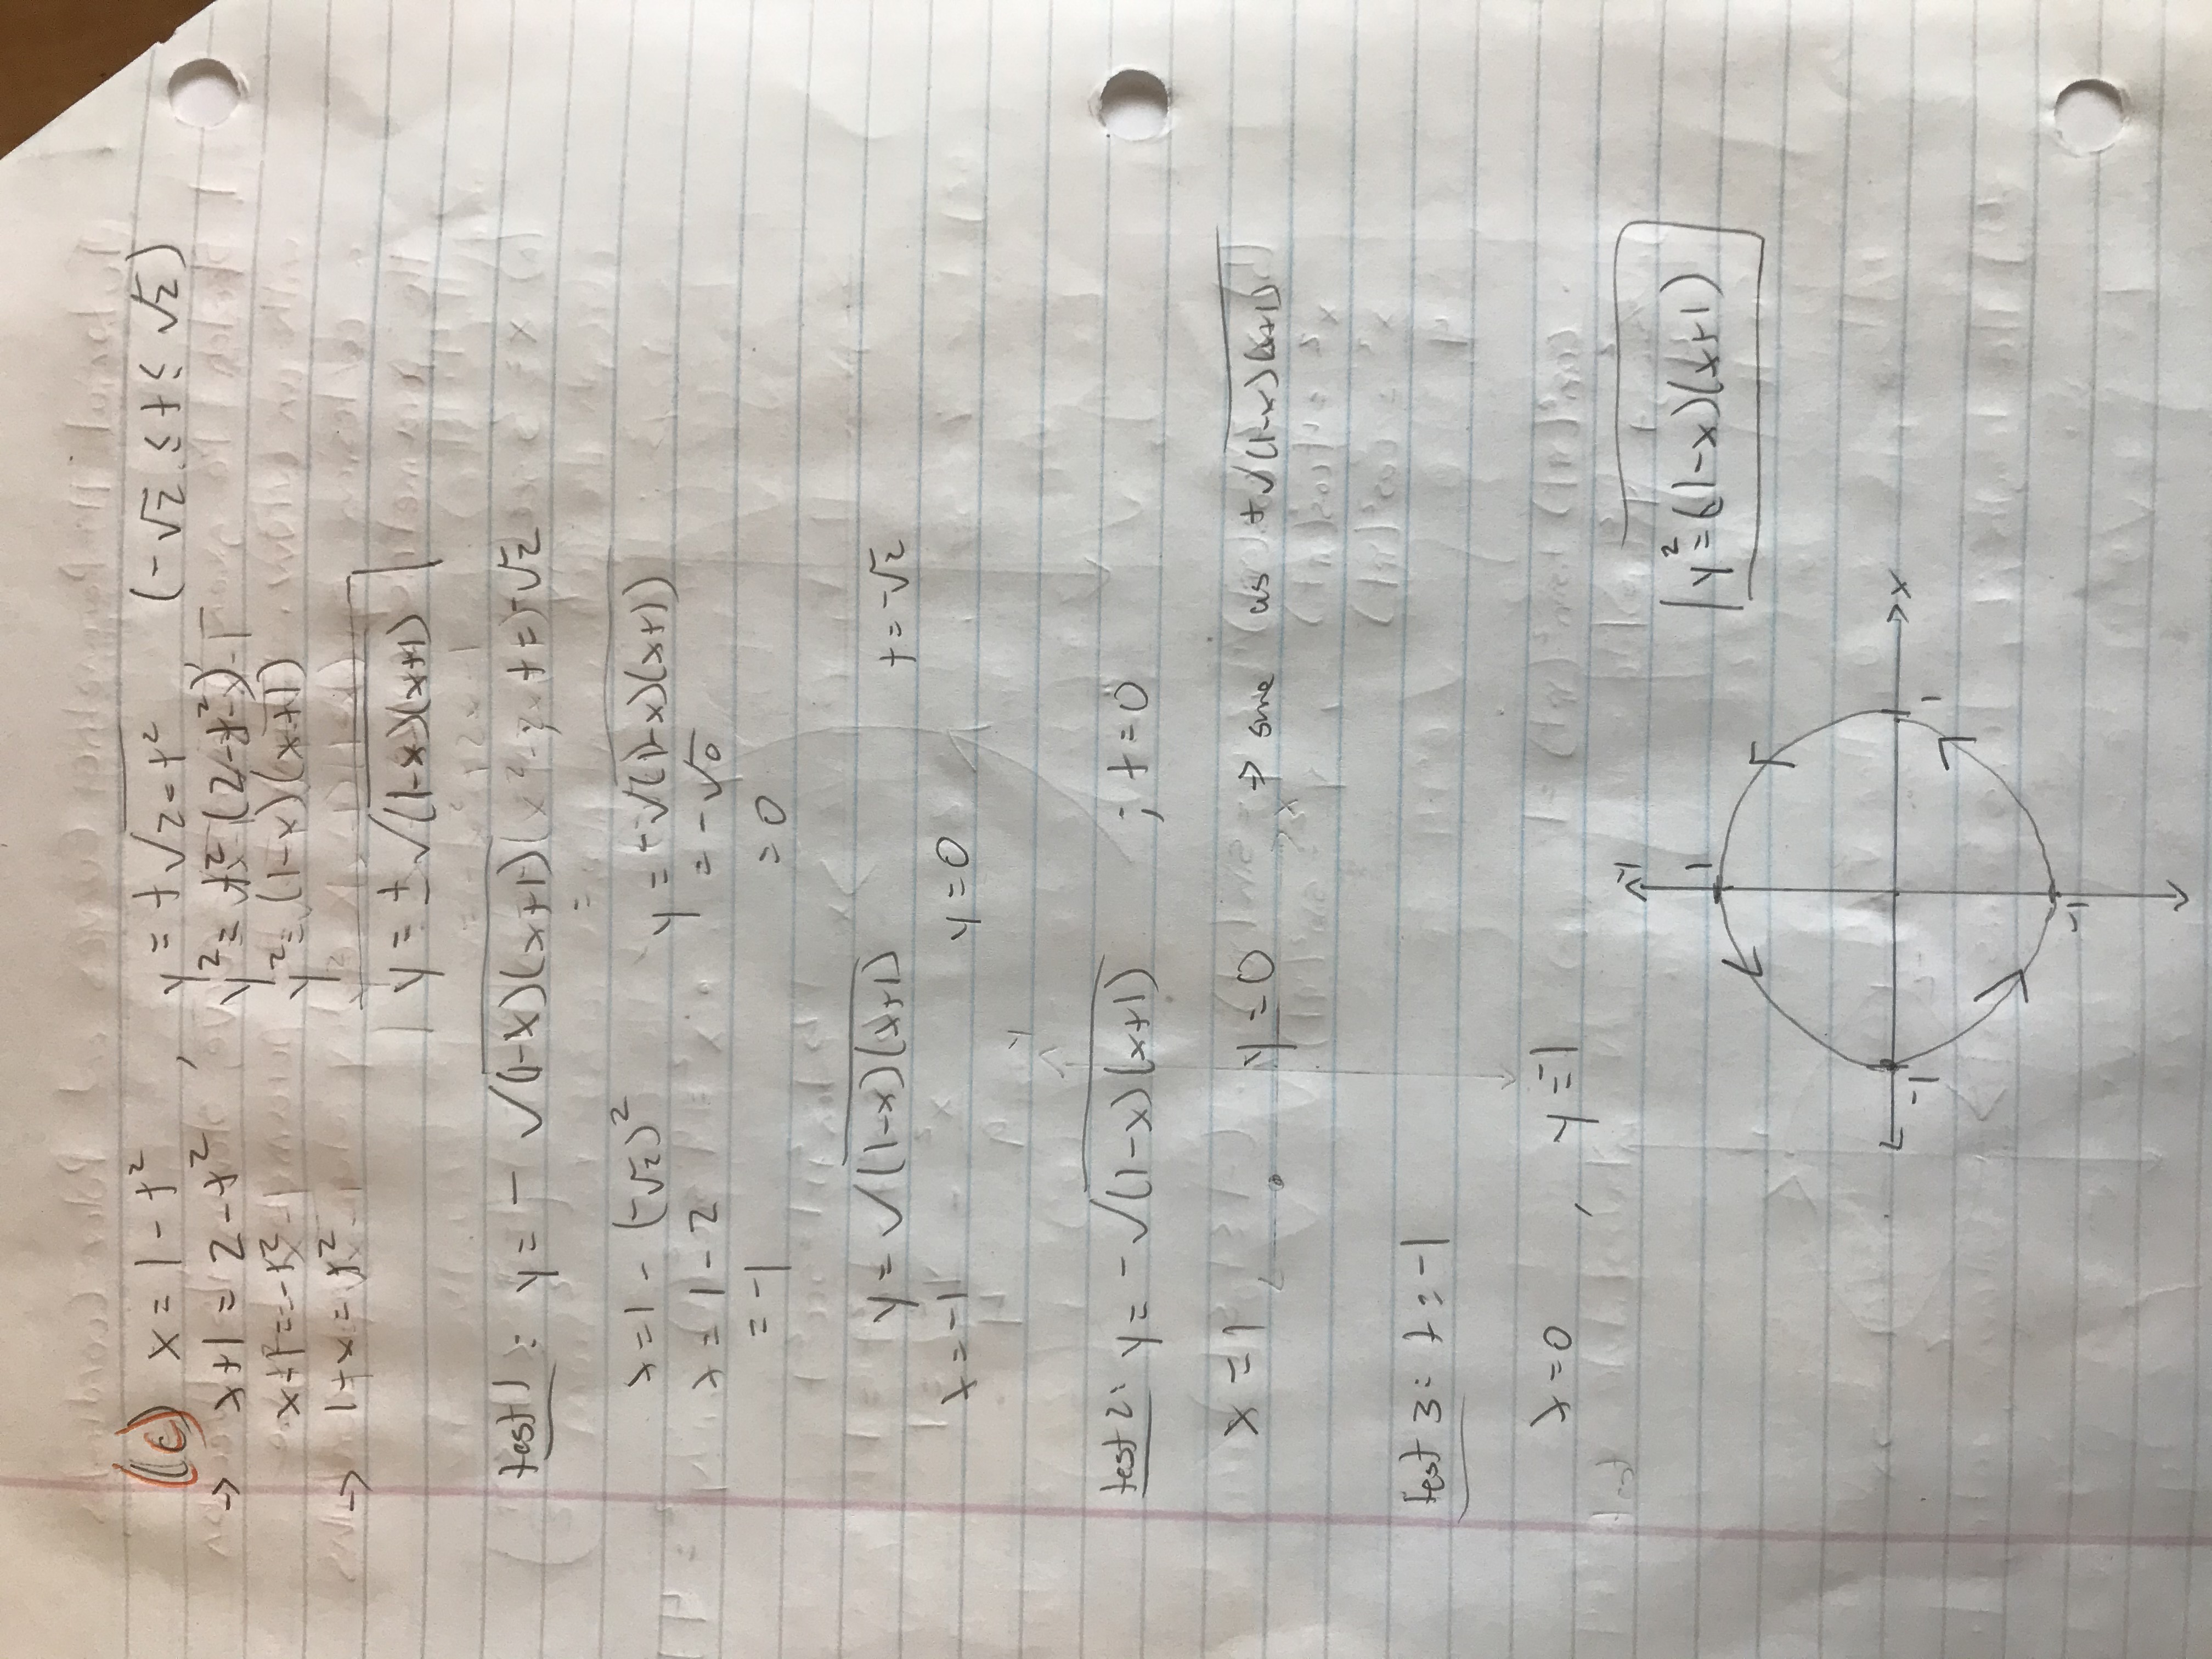 (c) x = 1 - t² , y = t√(2-t²) , (-√2 ≤ t ≤ √2)
→ x+1 = 2-t² y² = t²(2-t²)
x-1 = -t² y² = (1-x)(x+1)
→ 1-x = t²
y = ±√((1-x)(x+1))
test 1: y = -√((1-x)(x+1)) ; t = -√2
=
x = 1 - (-√2)² y = -√((1-x)(x+1))
x = 1 - 2 = -√0
= -1 = 0
y = √((1-x)(x+1)) t = -√2
x = -1 y = 0
test 2: y = -√((1-x)(x+1)) ; t = 0
x = 1, y = 0 → same as +√((1-x)(x+1))
test 3: t = -1
x = 0 , y = -1
test
y
1
y² = (1-x)(x+1)
-1 1 x
-1